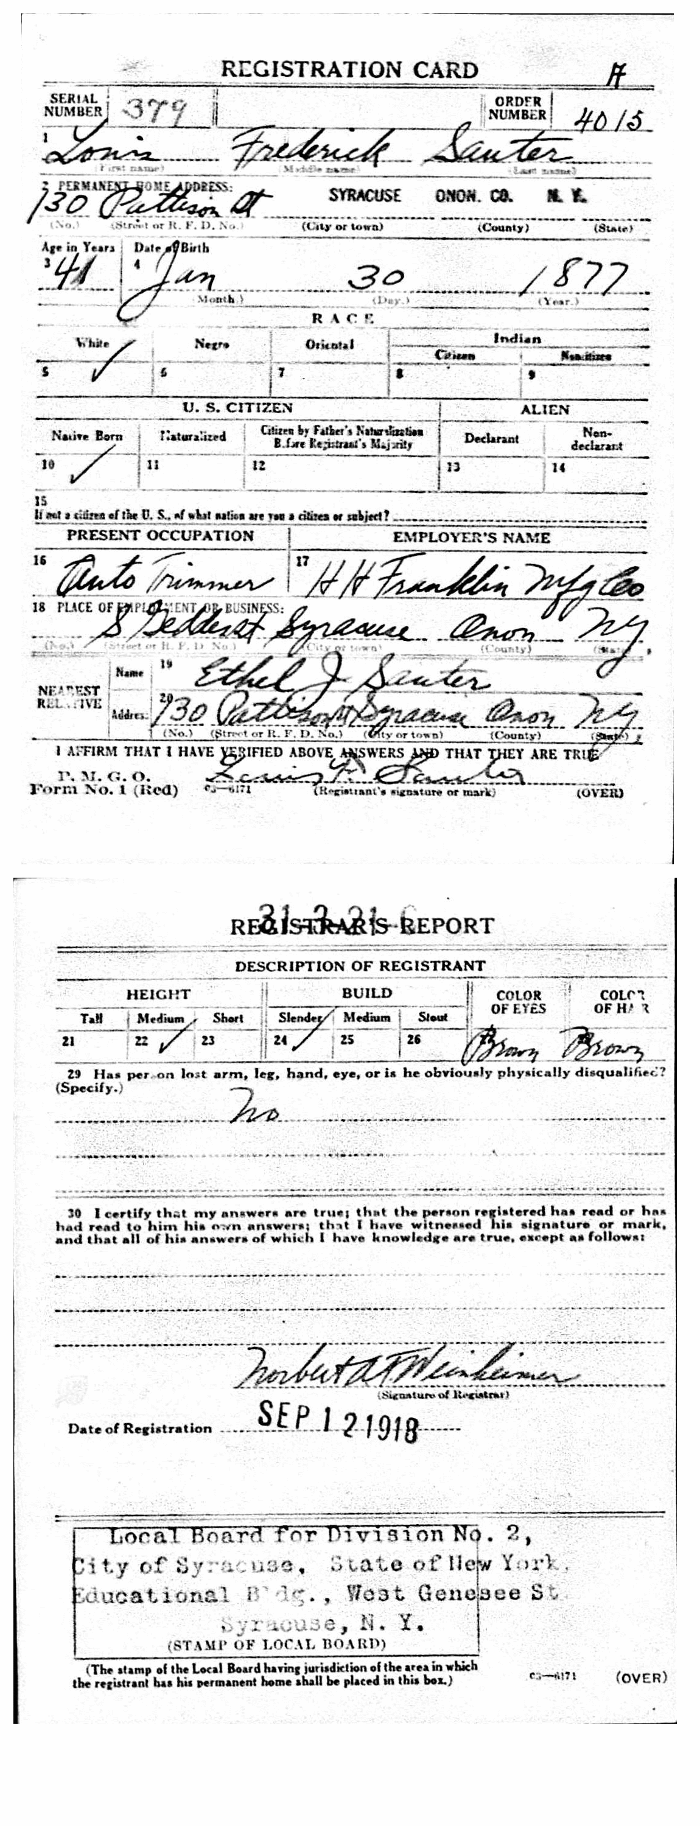 REGISTRATION CARD A
SERIAL NUMBER 379 ORDER NUMBER 4015
1 Louis Frederick Sauter
(First name) (Middle name) (Last name)
2 PERMANENT HOME ADDRESS:
130 Pattison St SYRACUSE ONON. CO. N. Y.
(No.) (Street or R. F. D. No.) (City or town) (County) (State)
Age in Years Date of Birth
3 41 4 Jan 30 1877
(Month.) (Day.) (Year.)
RACE
White Negro Oriental Indian
Citizen Noncitizen
5 ✓ 6 7 8 9
U. S. CITIZEN ALIEN
Native Born Naturalized Citizen by Father's Naturalization Before Registrant's Majority Declarant Non-declarant
10 ✓ 11 12 13 14
15
If not a citizen of the U. S., of what nation are you a citizen or subject?
PRESENT OCCUPATION EMPLOYER'S NAME
16 Auto Trimmer 17 H H Franklin Mfg Co
18 PLACE OF EMPLOYMENT OR BUSINESS:
S Geddes St Syracuse Onon NY
(No.) (Street or R. F. D. No.) (City or town) (County) (State)
NEAREST RELATIVE Name 19 Ethel J Sauter
Address 20 130 Pattison St Syracuse Onon NY
(No.) (Street or R. F. D. No.) (City or town) (County) (State)
I AFFIRM THAT I HAVE VERIFIED ABOVE ANSWERS AND THAT THEY ARE TRUE
P. M. G. O.
Form No. 1 (Red) 03—6171 Louis F. Sauter
(Registrant's signature or mark) (OVER)
31-3-21-C
REGISTRAR'S REPORT
DESCRIPTION OF REGISTRANT
HEIGHT BUILD COLOR OF EYES COLOR OF HAIR
Tall Medium Short Slender Medium Stout
21 22 ✓ 23 24 ✓ 25 26 Brown Brown
29 Has person lost arm, leg, hand, eye, or is he obviously physically disqualified?
(Specify.)
No
30 I certify that my answers are true; that the person registered has read or has
had read to him his own answers; that I have witnessed his signature or mark,
and that all of his answers of which I have knowledge are true, except as follows:
Norbert A F Weinheimer
(Signature of Registrar)
Date of Registration SEP 12 1918
Local Board for Division No. 2,
City of Syracuse, State of New York,
Educational Bldg., West Genesee St.
Syracuse, N. Y.
(STAMP OF LOCAL BOARD)
(The stamp of the Local Board having jurisdiction of the area in which
the registrant has his permanent home shall be placed in this box.)
03—6171 (OVER)